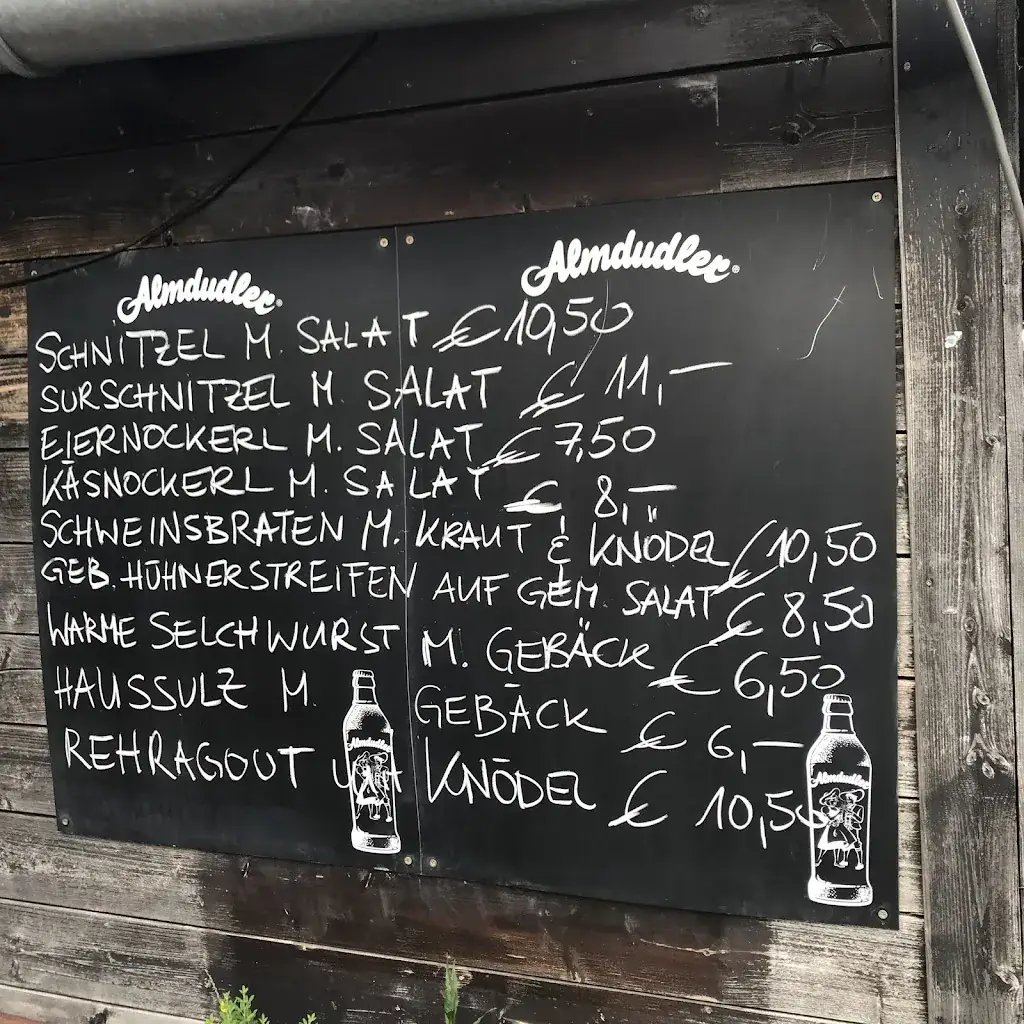 Almdudler®
Almdudler®
SCHNITZEL M. SALAT € 10,50
SURSCHNITZEL M. SALAT € 11,—
EIERNOCKERL M. SALAT € 7,50
KÄSNOCKERL M. SALAT € 8,—
SCHWEINSBRATEN M. KRAUT & KNÖDEL € 10,50
GEB. HÜHNERSTREIFEN AUF GEM. SALAT € 8,50
WARME SELCHWURST M. GEBÄCK € 6,50
HAUSSULZ M. GEBÄCK € 6,—
REHRAGOUT KNÖDEL € 10,50
Almdudler
Almdudler